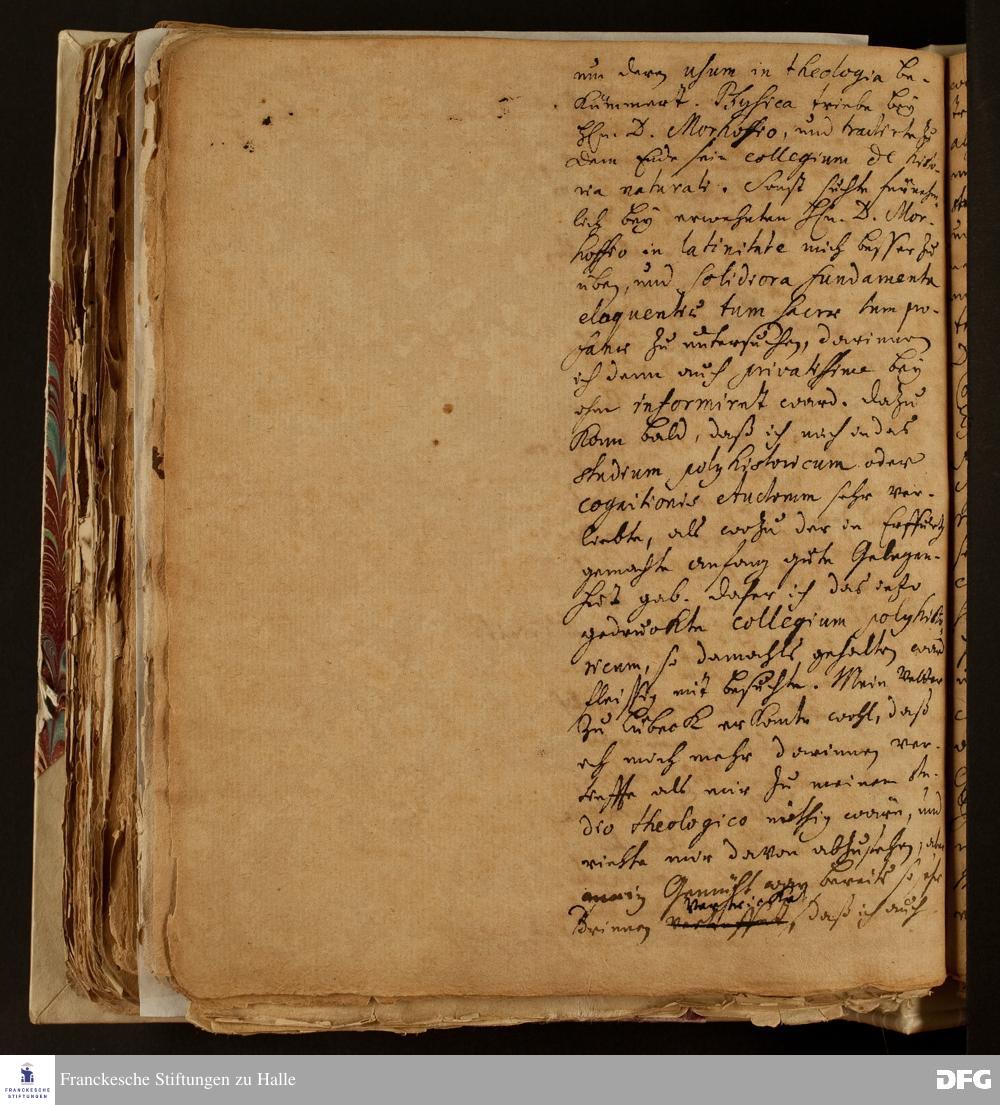 um deren usum in theologia be-
kümmert. Physica triebe bey
Hn. D. Morhoffio, und tractirte zu
dem Ende sein collegium de histo-
ria naturali. Sonst suchte fürnehm-
lich bey erwehnten Hn. D. Mor-
hoffio in latinitate mich besser zu
üben, und solidiora fundamenta
eloquentiæ tum sacræ tum pro-
fanæ zu untersuchen, darinnen
ich denn auch privatissime bey
ihm informiret ward. Dazu
kam bald, daß ich mich in das
studium polyhistoricum oder
cognitionis Auctorum sehr ver-
liebte, als wozu der in Erffurth
gemachte anfang gute Gelegen-
heit gab. Daher ich das itzo
gedruckte collegium polyhisto-
ricum, so damahls gehalten ward
fleissig mit besuchte. Mein Vetter
zu Lübeck erkante wohl, daß
ich mich mehr darinnen ver-
tieffte als mir zu meinem stu-
dio theologico nöthig wäre, und
riethe mir davon abzustehen, aber
mein Gemüth war bereits so sehr
verwickelt
drinnen, daß ich auch
Franckesche Stiftungen zu Halle
FRANCKESCHE
STIFTUNGEN
DFG